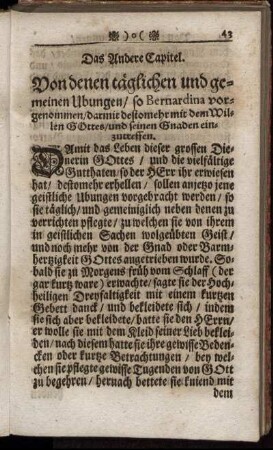 )o( 43
Das Andere Capitel.
Von denen täglichen und ge-
meinen Ubungen / so Bernardina vor-
genommen / darmit destomehr mit dem Wil-
len GOttes / und seinen Gnaden ein-
zutreffen.
DAmit das Leben dieser grossen Die-
nerin GOttes / und die vielfältige
Gutthaten / so der HErr ihr erwiesen
hat / destomehr erhellen / sollen anjetzo jene
geistliche Ubungen vorgebracht werden / so
sie täglich / und gemeiniglich neben denen zu
verrichten pflegte / zu welchen sie von ihrem
in geistlichen Sachen wolgeübten Geist /
und noch mehr von der Gnad oder Barm-
hertzigkeit GOttes angetrieben wurde. So-
bald sie zu Morgens früh vom Schlaff ( der
gar kurtz ware ) erwachte / sagte sie der Hoch-
heiligen Dreyfaltigkeit mit einem kurtzen
Gebett danck / und bekleidete sich / indem
sie sich aber bekleidete / batte sie den HErrn /
er wolle sie mit dem Kleid seiner Lieb beklei-
den / nach diesem hatte sie ihre gewisse Beden-
cken oder kurtze Betrachtungen / bey wel-
chen sie pflegte gewisse Tugenden von GOtt
zu begehren / hernach bettete sie kniend mit
dem